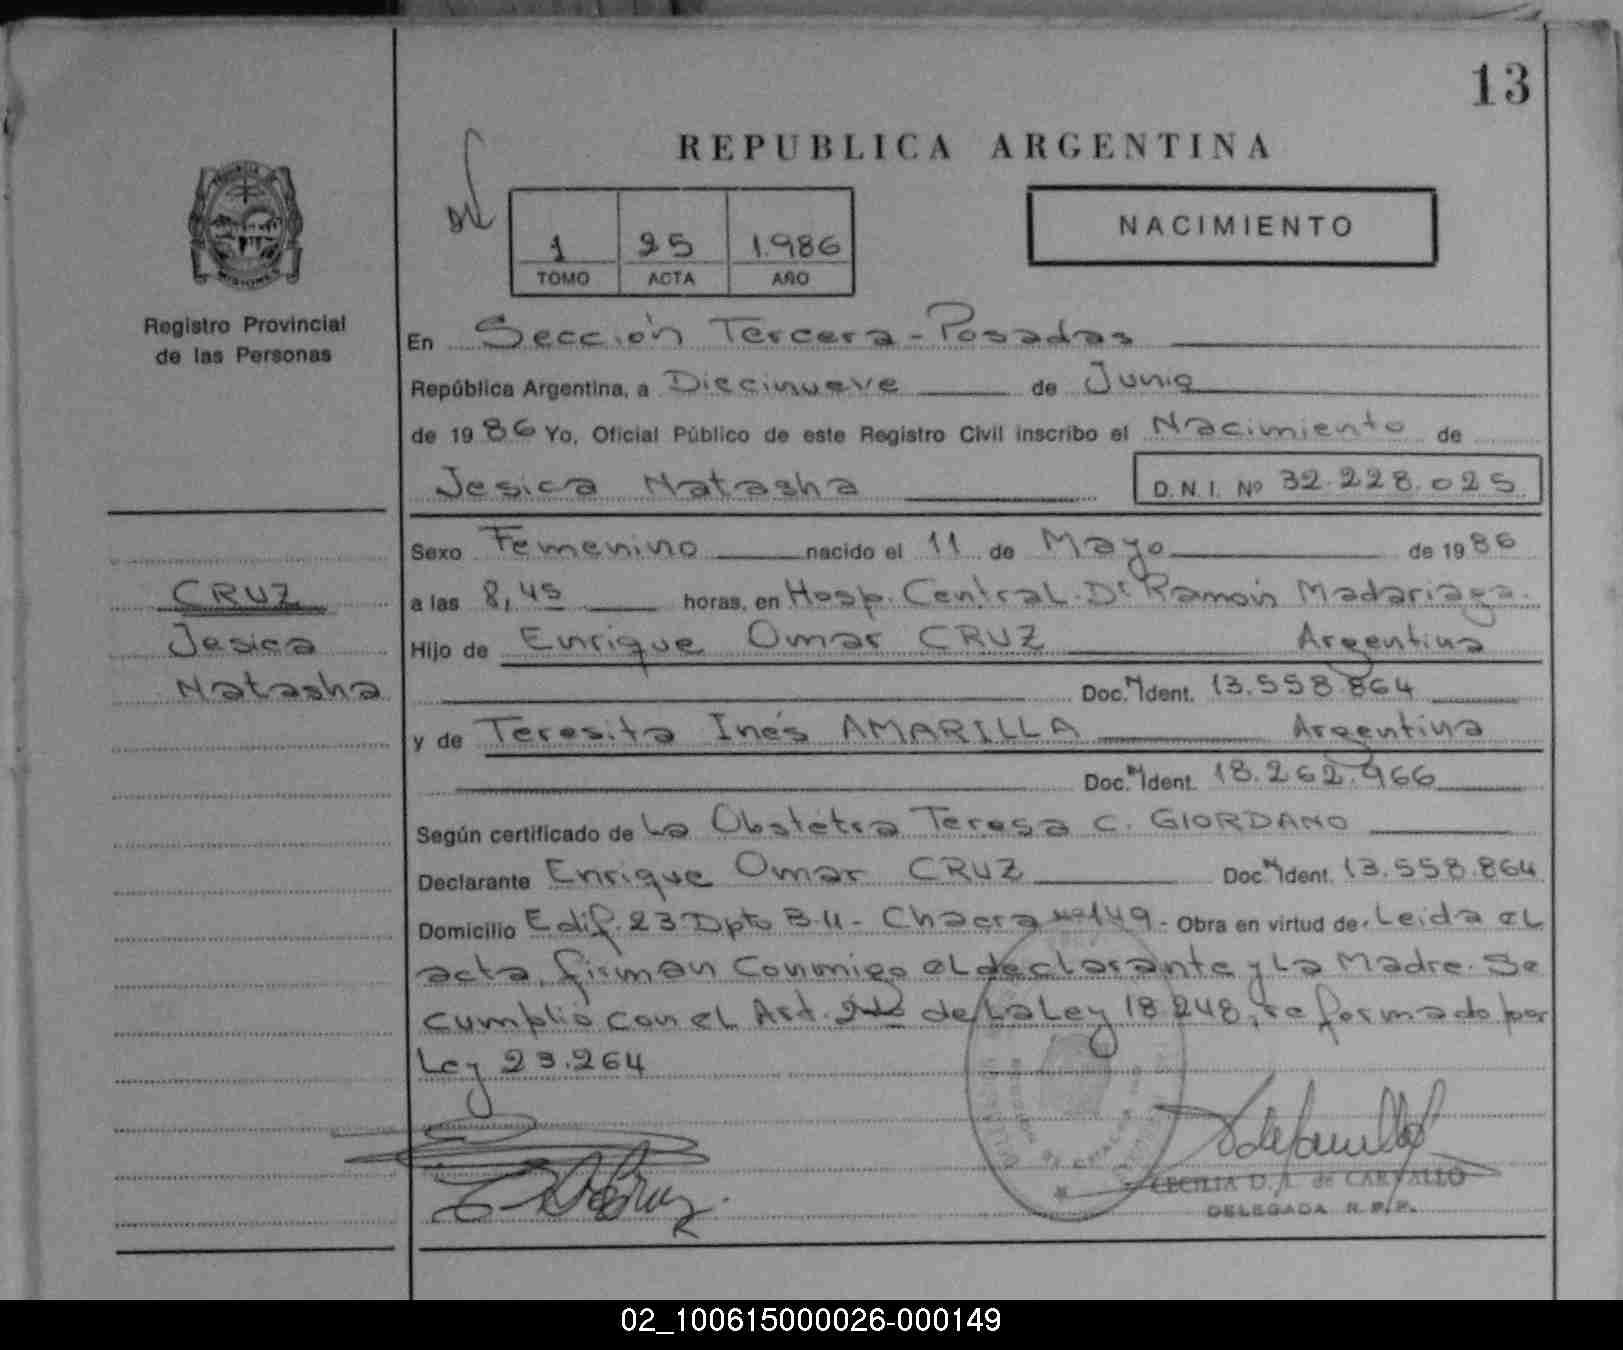 13
REPUBLICA ARGENTINA
NACIMIENTO
1 25 1.986
TOMO ACTA AÑO
Registro Provincial
de las Personas
En Sección Tercera - Posadas
República Argentina, a Diecinueve de Junio
de 1986 Yo, Oficial Público de este Registro Civil inscribo el Nacimiento de
Jesica Natasha D.N.I. Nº 32.228.025
Sexo Femenino nacido el 11 de Mayo de 1986
CRUZ
Jesica
Natasha
a las 8,45 horas, en Hosp. Central. Dr Ramón Madariaga.
Hijo de Enrique Omar CRUZ Argentina
Doc. N Ident. 13.558.864
y de Teresita Inés AMARILLA Argentina
Doc. N Ident. 18.262.966
Según certificado de La Obstétra Teresa C. GIORDANO
Declarante Enrique Omar CRUZ Doc. N Ident. 13.558.864
Domicilio Edif. 23 Dpto B-11 - Chacra nº 149 - Obra en virtud de Leida el
acta, firman conmigo el declarante y La Madre. Se
cumplió con el Art. de La Ley 18.248, reformado por
Ley 23.264
CECILIA D. A. de CARVALLO
DELEGADA R.P.P.
02_100615000026-000149